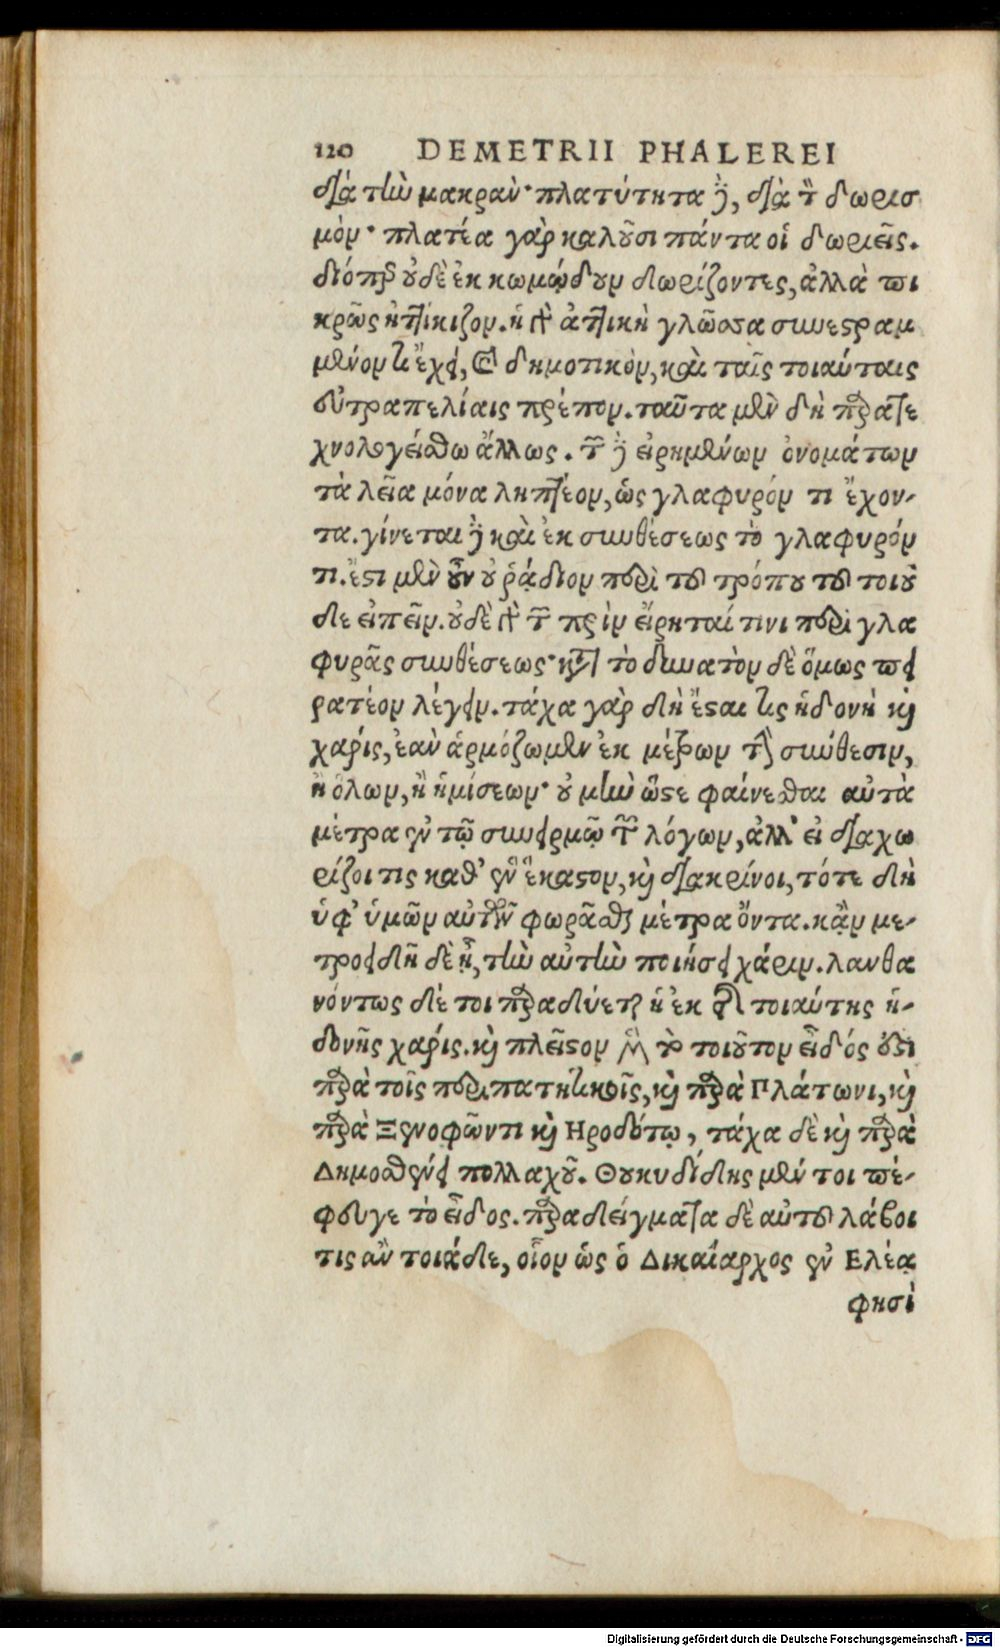 120 DEMETRII PHALEREI
διὰ τὴν μακράν· πλατύτητα δὲ, διὰ τὸν δωρισ
μόν· πλατέα γὰρ καλοῦσι πάντα οἱ δωριεῖς.
διόπερ οὐδὲ ἐκωμῴδουν δωρίζοντες, ἀλλὰ πι
κρῶς ἠττίκιζον. ἡ γὰρ ἀττικὴ γλῶσσα συνεστραμ
μένον τι ἔχει, καὶ δημοτικὸν, καὶ ταῖς τοιαύταις
εὐτραπελίαις πρέπον. ταῦτα μὲν δὴ παρατε
χνολογείσθω ἄλλως. τῶν δὲ εἰρημένων ὀνομάτων
τὰ λεῖα μόνα ληπτέον, ὡς γλαφυρόν τι ἔχον-
τα. γίνεται δὲ καὶ ἐκ συνθέσεως τὸ γλαφυρόν
τι. ἔστι μὲν οὖν οὐ ῥᾴδιον περὶ τοῦ τρόπου τοῦ τοιοῦ
δε εἰπεῖν. οὐδὲ γὰρ τῶν πρὶν εἴρηταί τινι περὶ γλα
φυρᾶς συνθέσεως· κατὰ τὸ δυνατὸν δὲ ὅμως πει
ρατέον λέγειν. τάχα γὰρ δὴ ἔσται τις ἡδονὴ καὶ
χάρις, ἐὰν ἁρμόζωμεν ἐκ μέτρων τὴν σύνθεσιν,
ἢ ὅλων, ἢ ἡμίσεων· οὐ μὴν ὥστε φαίνεσθαι αὐτὰ
μέτρα ἐν τῷ συνειρμῷ τῶν λόγων, ἀλλ' εἰ διαχω
ρίζοι τις καθ' ἓν ἕκαστον, καὶ διακρίνοι, τότε δὴ
ὑφ' ὑμῶν αὐτῶν φωρᾶσθαι μέτρα ὄντα. κἂν με-
τροειδῆ δὲ ᾖ, τὴν αὐτὴν ποιήσει χάριν. λανθα
νόντως δέ τοι παραδύεται ἡ ἐκ τῆς τοιαύτης ἡ-
δονῆς χάρις. καὶ πλεῖστον μὲν τὸ τοιοῦτον εἶδός ἐστι
παρὰ τοῖς περιπατητικοῖς, καὶ παρὰ Πλάτωνι, καὶ
παρὰ Ξενοφῶντι καὶ Ηροδότῳ, τάχα δὲ καὶ παρὰ
Δημοσθένει πολλαχοῦ. Θουκυδίδης μέν τοι πέ-
φευγε τὸ εἶδος. παραδείγματα δὲ αὐτοῦ λάβοι
τις ἂν τοιάδε, οἷον ὡς ὁ Δικαίαρχος ἐν Ελέᾳ
φησὶ
Digitalisierung gefördert durch die Deutsche Forschungsgemeinschaft - DFG